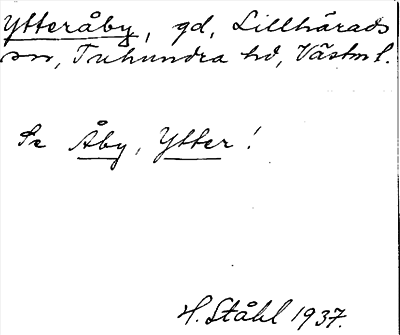 Ytteråby, gd, Lillhärads
sn, Tuhundra hd, Västm l.
Se Åby, Ytter!
H. Ståhl 1937.